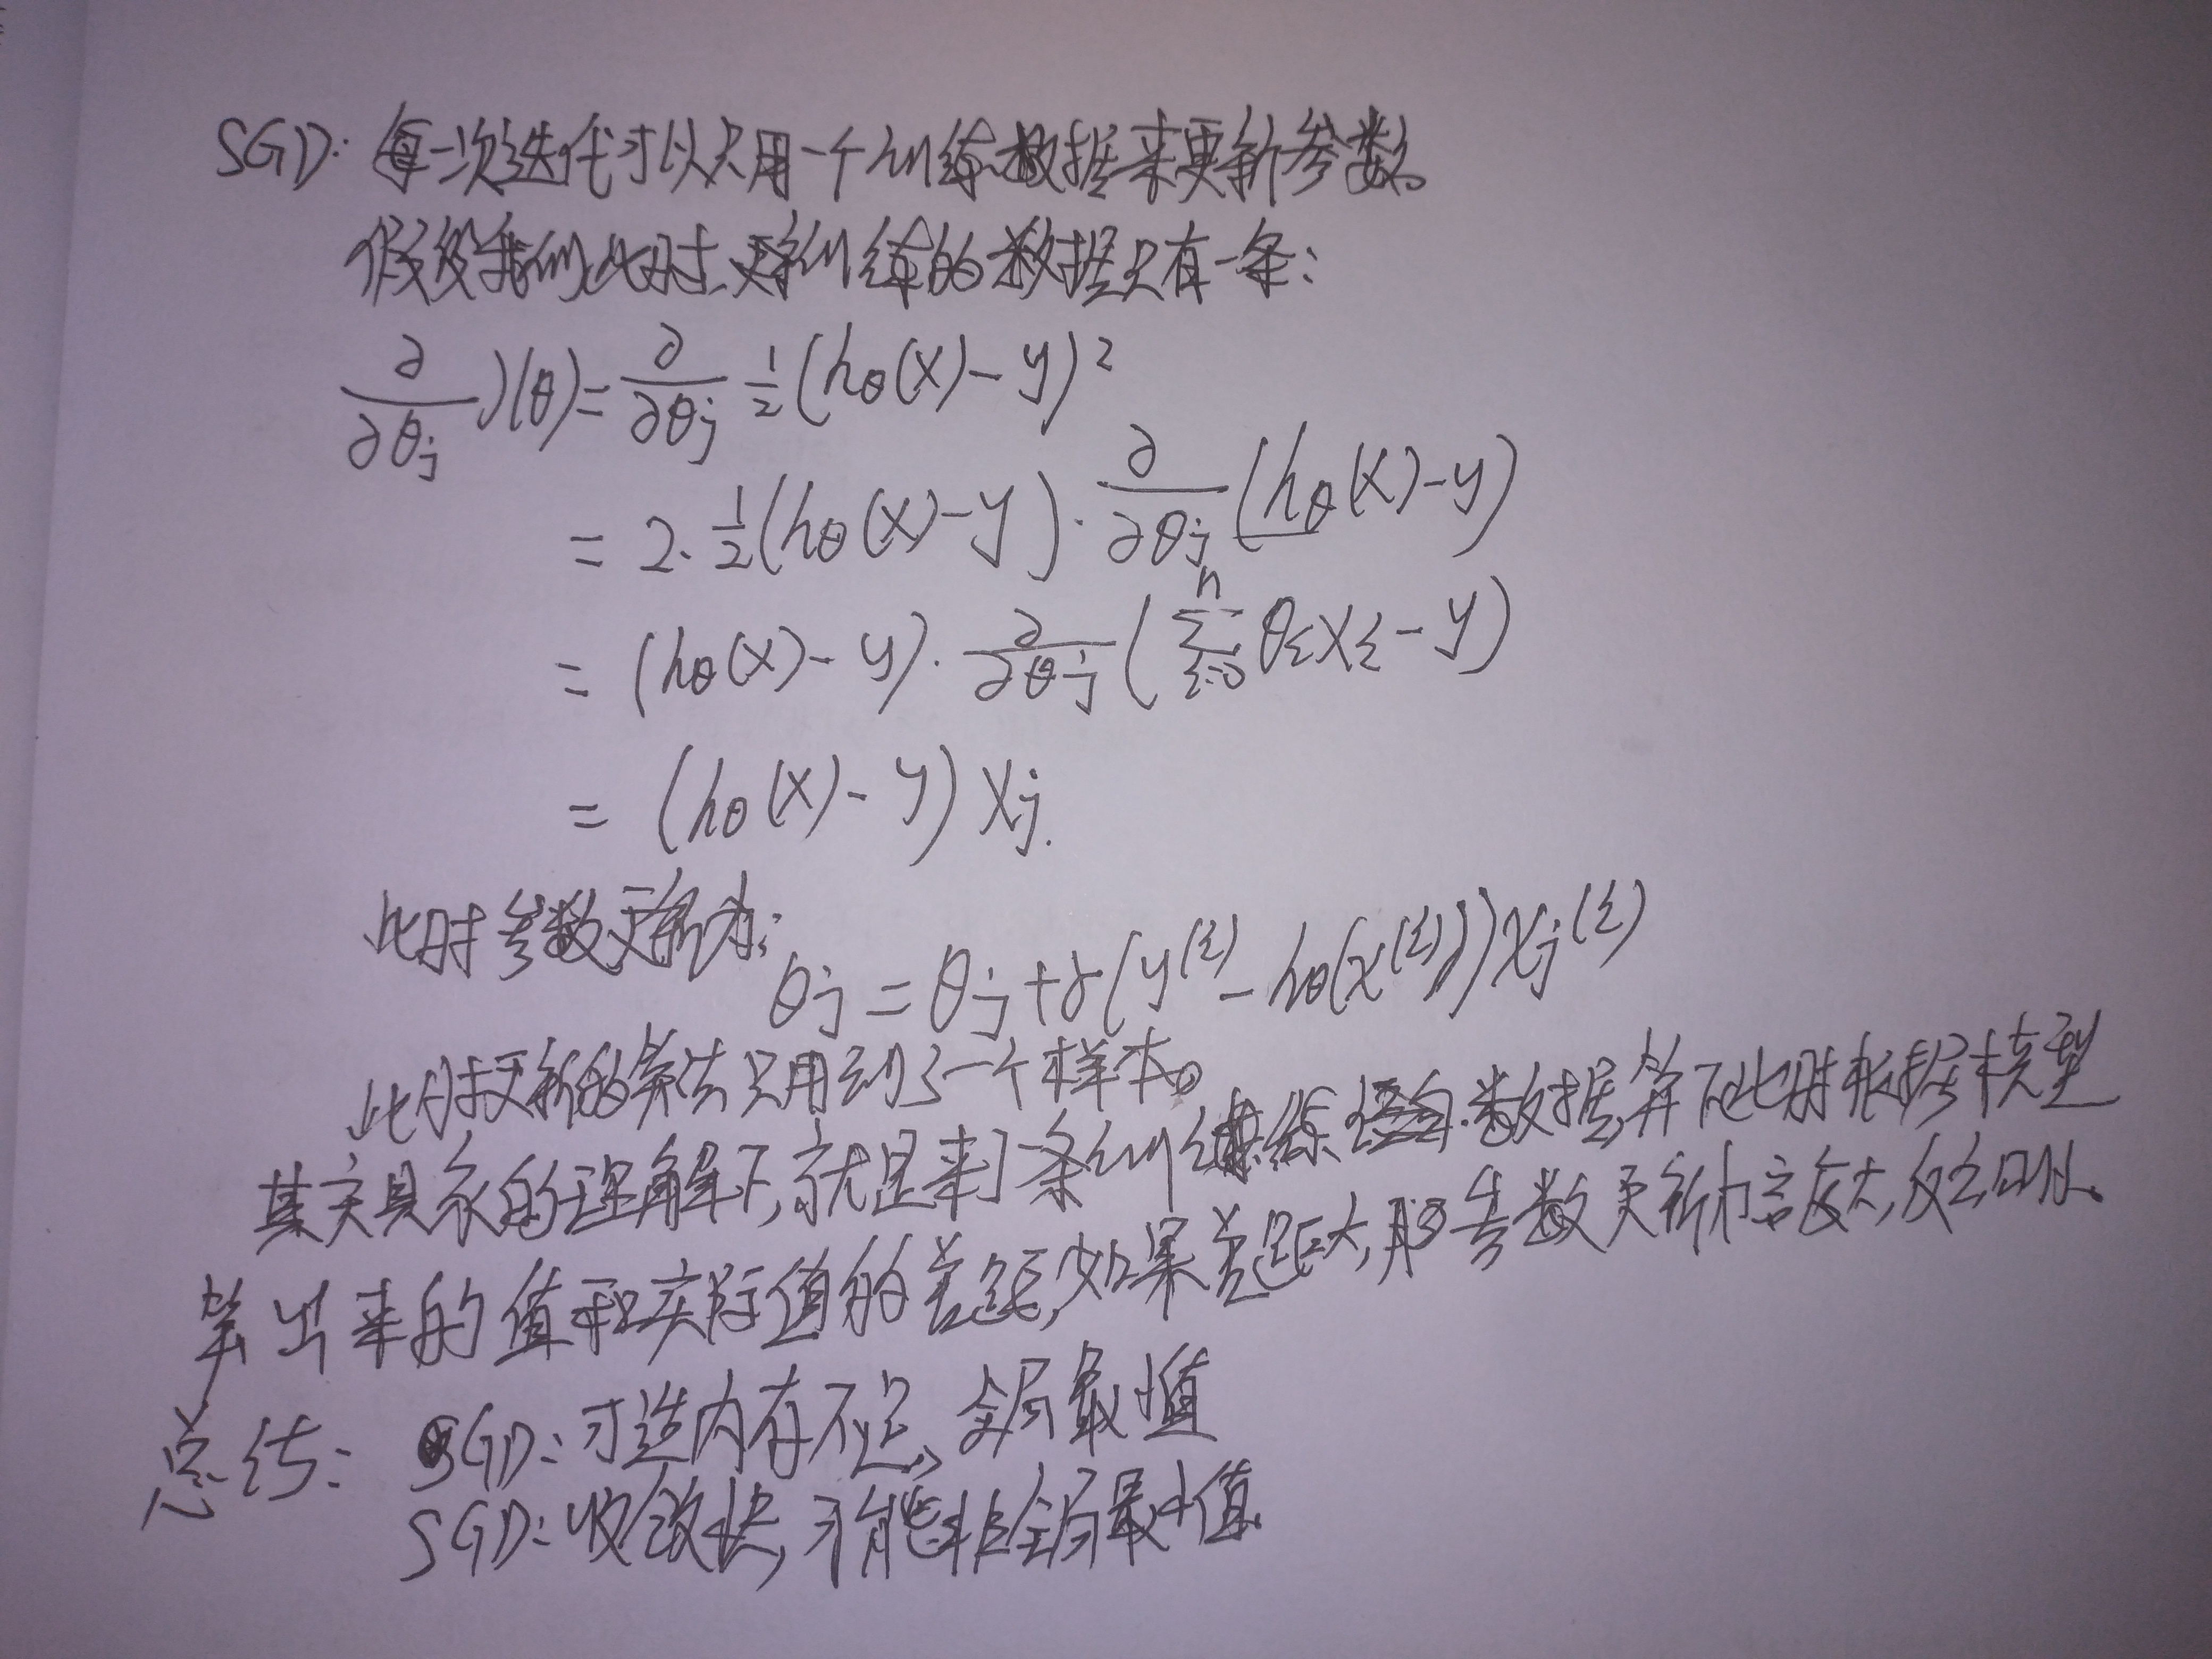 SGD: 每一次迭代可以只用一个训练数据来更新参数。
假设我们此时更新训练的数据只有一条:
∂/∂θj J(θ) = ∂/∂θj 1/2 (hθ(x) - y)²
= 2 · 1/2 (hθ(x) - y) · ∂/∂θj (hθ(x) - y)
= (hθ(x) - y) · ∂/∂θj (∑ i=0 n θi xi - y)
= (hθ(x) - y) xj.
此时参数更新为:
θj = θj + α (y(i) - hθ(x(i))) xj(i)
此时更新的算法只用到了一个样本。
其实具象的理解下,就是来了一条训练数据,算下此时根据模型
算出来的值和实际值的差距,如果差距大,那参数更新幅度大,反之则小。
总结: BGD: 可造内存不足、全局最小值
SGD: 收敛快,可能非全局最小值.